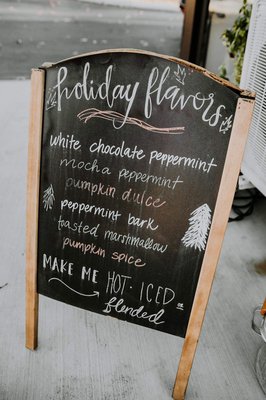 holiday flavors
white chocolate peppermint
mocha peppermint
pumpkin dulce
peppermint bark
toasted marshmallow
pumpkin spice
MAKE ME HOT · ICED or
blended